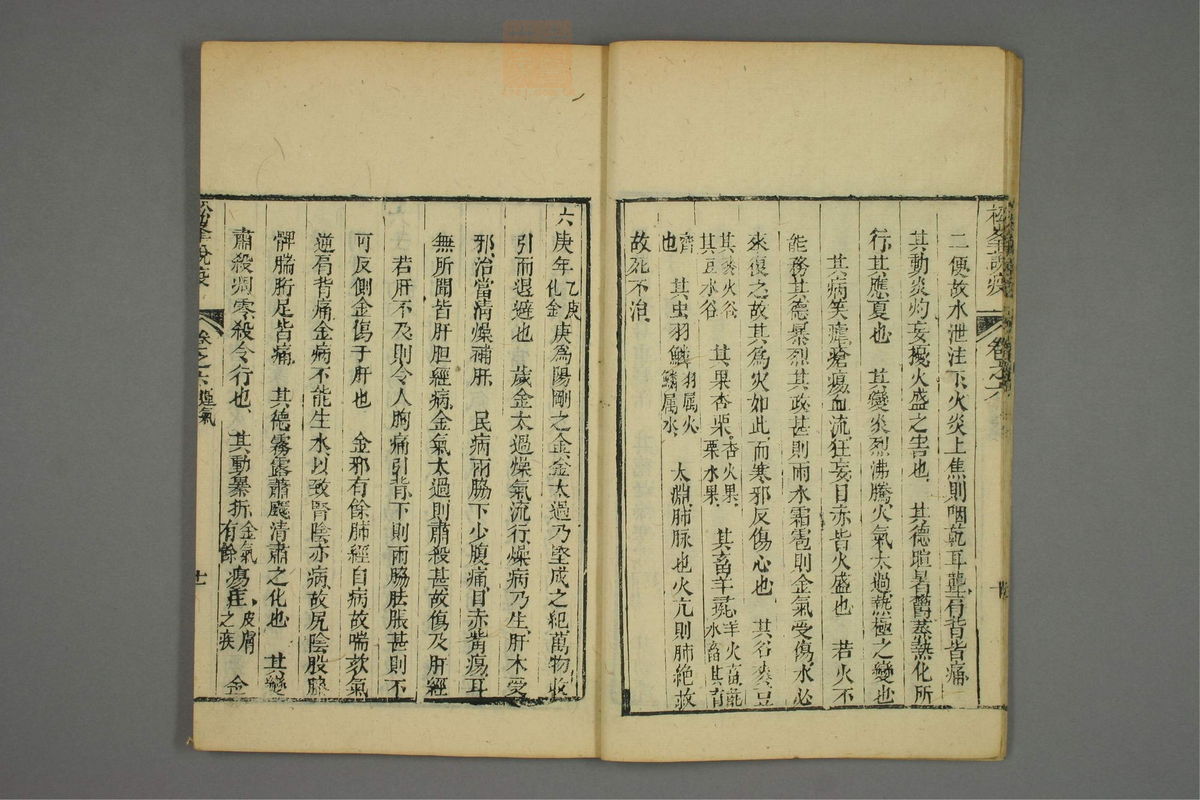 二便故水泄注下火炎上焦則咽乾耳聾肩背皆痛
其動炎灼妄擾火盛之害也　其德暄暑鬱蒸熱化所
行其應夏也　其變炎烈沸騰火氣太過熱極之變也
其病笑瘧瘡瘍血流狂妄目赤皆火盛也　若火不
能務其德暴烈其政甚則雨水霜雹則金氣受傷水必
來復之故其為災如此而寒邪反傷心也　其谷麥豆
其麥火谷其豆水谷　其果杏栗杏火果栗水果　其畜羊彘羊火畜彘水畜其育
齊也　其虫羽鱗羽属火鱗属水　太淵肺脉也火亢則肺絶故
故死不治
松峯說疫
卷之六
六庚年乙庚化金庚為陽剛之金金太過乃堅成之紀萬物收
引而退避也　歲金太過燥氣流行燥病乃生肝木受
邪治當清燥補肝　民病兩脇下少腹痛目赤眥瘍耳
無所聞皆肝胆經病金氣太過則肅殺甚故傷及肝經
若肝不及則令人胸痛引背下則兩脇胠脹甚則不
可反側金傷于肝也　金邪有餘肺經自病故喘欬氣
逆肩背痛金病不能生水以致腎陰亦病故尻陰股膝
髀腨胻足皆痛　其德霧露蕭飋清肅之化也　其變
肅殺凋零殺令行也　其動暴折金氣有餘瘍疰皮膚之疾　金
松峯說疫
卷之六運氣
十一